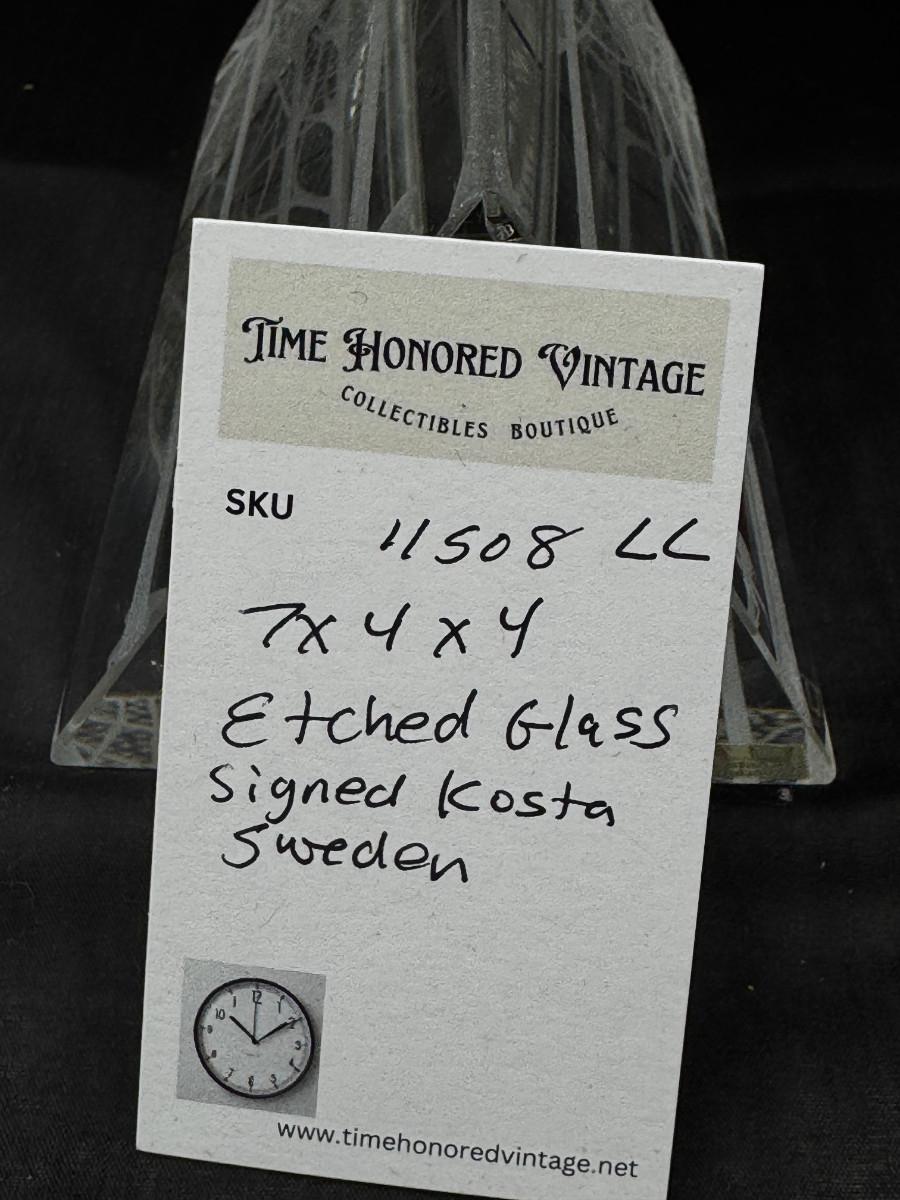 TIME HONORED VINTAGE
COLLECTIBLES BOUTIQUE
SKU 11508 LL
7x 4 x 4
Etched Glass
Signed Kosta
Sweden
12
1
2
3
4
5
6
7
8
9
10
1
www.timehonoredvintage.net